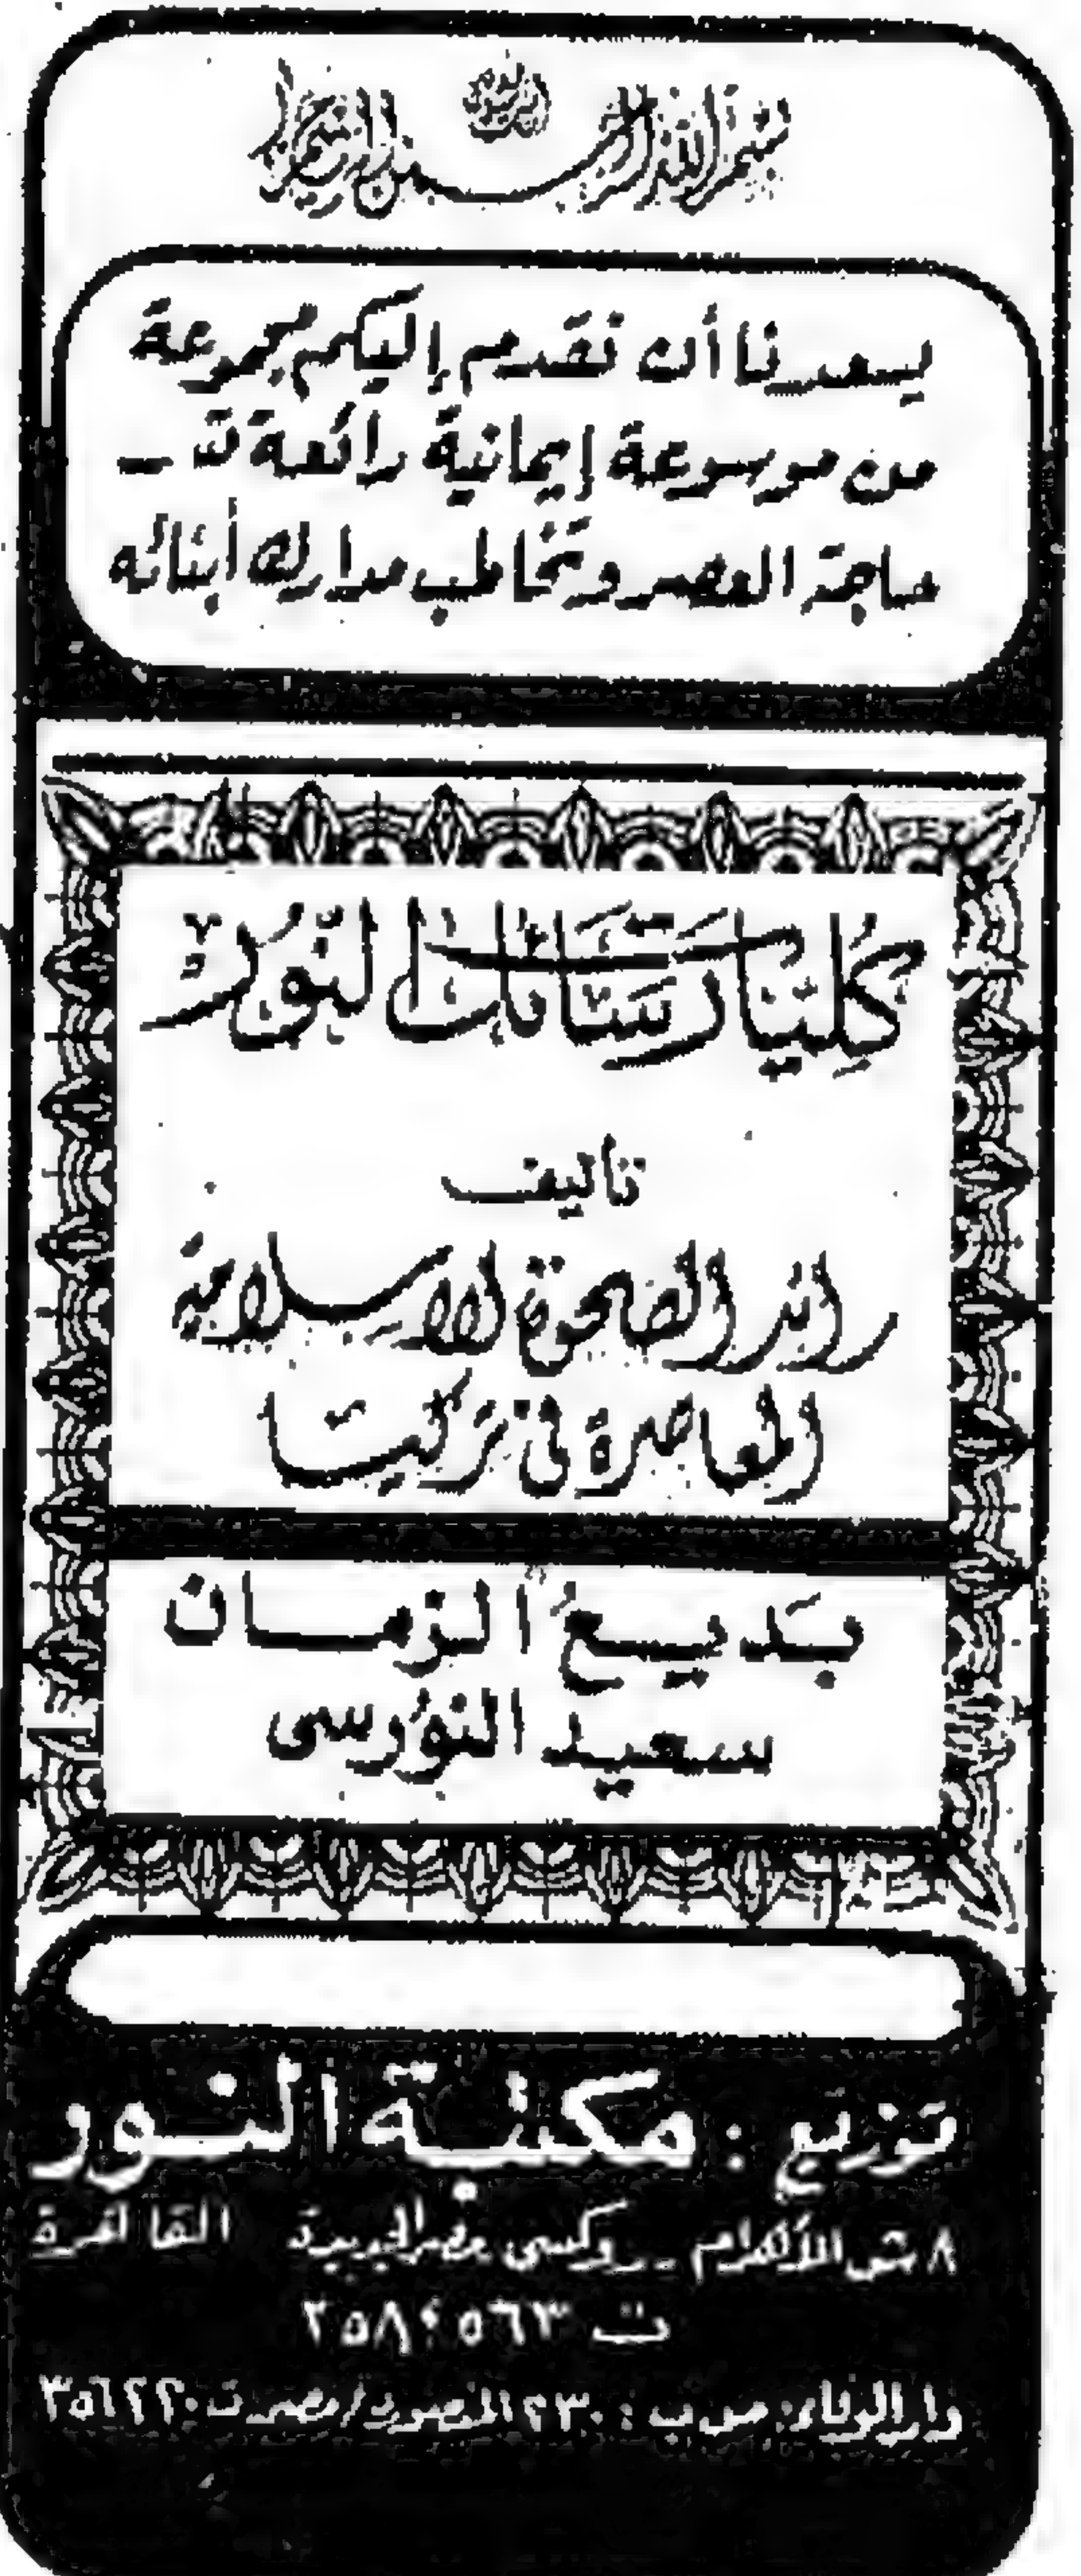 بسم الله الرحمن الرحيم
يسعدنا أن نقدم إليكم مجموعة
من موسوعة إيمانية رائعة تسد
حاجة العصر وتخاطب مدارك أبنائه
كليات رسائل النور
تأليف
رائد الصحوة الإسلامية
المعاصرة فى تركيا
بديع الزمان
سعيد النورسى
توزيع : مكتبة النور
٨ ش الأهرام - روكسى مصر الجديدة القاهرة
ت
دار الوفاء: ص ب : ٢٣٠ المنصورة/مصر ت